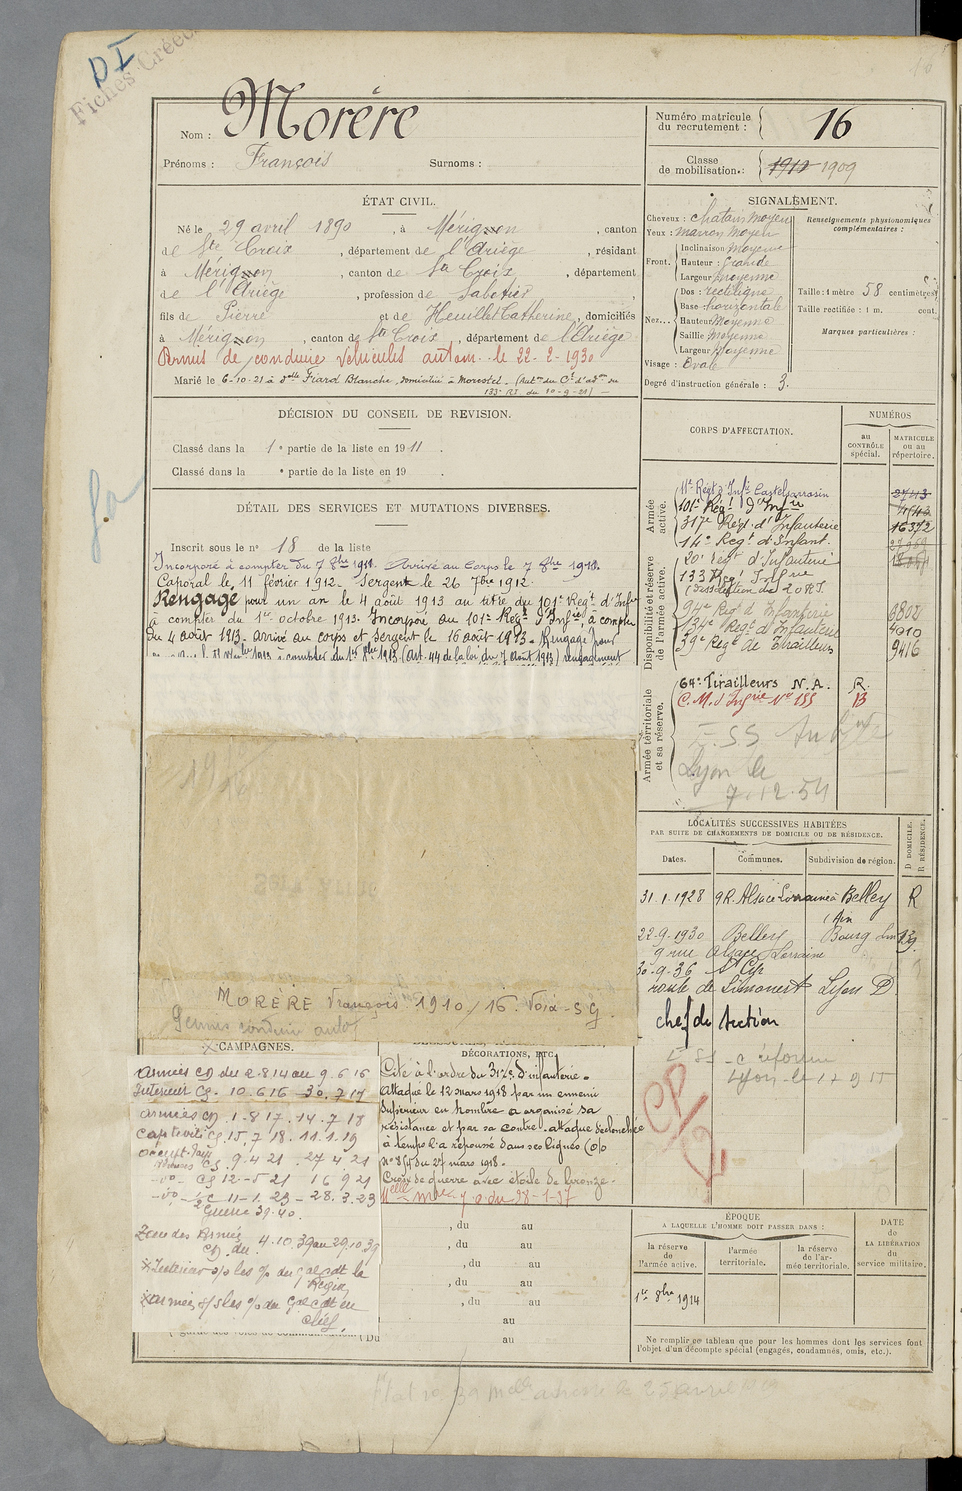 DI
Fiches Créées
Nom : Morère
Prénoms : François Surnoms :
Numéro matricule du recrutement : 16
Classe de mobilisation : 1910 1909
ÉTAT CIVIL.
Né le 29 avril 1890, à Mérignon, canton
de Ste Croix, département de l'Ariège, résidant
à Mérignon, canton de Ste Croix, département
de l'Ariège, profession de Sabotier,
fils de Pierre et de Heuillet Catherine, domiciliés
à Mérignon, canton de Ste Croix, département de l'Ariège
Permis de conduire véhicules autom. le 22-2-1930
Marié le 6-10-21 à Delle Fiard Blanche, domiciliée à Morestel. (Auton du Cl d'adon du
133e RI du 10-9-21) —
SIGNALEMENT.
Cheveux : chatain moyen
Yeux : marron moyen
Front. Inclinaison moyenne
Hauteur : Grande
Largeur moyenne
Nez... Dos : rectiligne
Base horizontale
Hauteur Moyenne
Saillie Moyenne
Largeur Moyenne
Visage : Ovale
Renseignements physionomiques complémentaires :
Taille : 1 mètre 58 centimètres
Taille rectifiée : 1 m. cent.
Marques particulières :
Degré d'instruction générale : 3.
DÉCISION DU CONSEIL DE REVISION.
Classé dans la 1e partie de la liste en 1911.
Classé dans la e partie de la liste en 19 .
DÉTAIL DES SERVICES ET MUTATIONS DIVERSES.
Inscrit sous le no 18 de la liste
Incorporé à compter du 7 8bre 1911. Arrivé au Corps le 7 8bre 1911.
Caporal le 11 février 1912. Sergent le 26 7bre 1912.
Rengagé pour un an le 4 août 1913 au titre du 101e Régt d'Infie
à compter du 1er octobre 1913. Incorporé au 101e Régt d'Infie, à compter
du 4 août 1913. arrivé au corps et Sergent le 16 août 1913. Rengagé pour
1913 à compter du 1er 1913 (Art. 44 de la loi du 7 Août 1913) rengagement
CORPS D'AFFECTATION.
NUMÉROS
au CONTRÔLE spécial.
MATRICULE ou au répertoire.
Armée active.
11e Régt d'Infie Castelsarrasin 3743
101e Régt d'Infie 4543
317e Régt d'Infanterie 16372
14e Regt d'Infant.
Disponibilité et réserve de l'armée active.
20e régt d'Infanterie
133 Régt Infrie
(Dissolution du 20 RI.
94e Régt d'Infanterie 6802
134e Régt d'Infanterie 4910
39e Regt de Tirailleurs 9416
Armée territoriale et sa réserve.
64e Tirailleurs N.A. R.
C.M. d'Infrie No 155 13
Lyon le
7.12.54
LOCALITÉS SUCCESSIVES HABITÉES
PAR SUITE DE CHANGEMENTS DE DOMICILE OU DE RÉSIDENCE.
Dates. Communes. Subdivision de région. D DOMICILE. R RÉSIDENCE.
31.1.1928 9 R. Alsace Lorraine à Belley R
(Ain
22-9-1930 Belley Bourg
9 rue Alsace Lorraine
30-9-36 St Cyr
route de Limonest Lyon D
chef de section
MORÈRE François 1910/16. Voir S.G.
Permis conduire auto
CAMPAGNES.
Armées CD du 2.8.14 au 9.6.16
Intérieur CS. 10.6.16 - 30.7.17
Armées CD 1.8.17 . 14.7.18
Captivité CS 15.7.18 . 11.1.19
Occupt. Pays
Rhénans CS 9.4.21 . 27.4.21
-do- CS 12.5.21 16 9 21
-do- 1/2 C 11-1.23 - 28.3.23
2e Guerre 39.40.
Zone des Armées
CD du 4.10.39 au 29.10.39
Intérieur s/s les o/ du Gal Cdt la
Région
Armées s/s les o/ du Gal Cdt en
chef.
DÉCORATIONS, ETC.
Cité à l'ordre du 317e d'infanterie.
Attaqué le 12 mars 1918 par un ennemi
supérieur en nombre a organisé sa
résistance et par sa contre-attaque déclenchée
à temps l'a repoussé dans ses lignes (O/
no 8/5 du 27 mars 1918.
Croix de guerre avec étoile de bronze.
, du au
, du au
, du au
, du au
, du au
au
(Du au
ÉPOQUE
A LAQUELLE L'HOMME DOIT PASSER DANS :
la réserve de l'armée active.
l'armée territoriale.
la réserve de l'armée territoriale.
DATE DE LA LIBÉRATION du service militaire.
1er 8bre 1914
Ne remplir ce tableau que pour les hommes dont les services font
l'objet d'un décompte spécial (engagés, condamnés, omis, etc.).